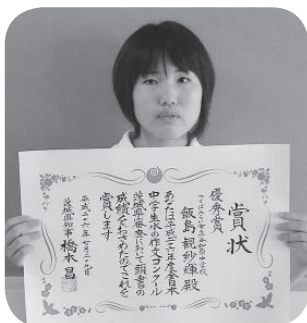 賞状
優秀賞
つくばみらい市立谷和原中学校
飯島観紗輝殿
あなたは平成二十六年度全日本
中学生水の作文コンクール
茨城県審査において頭書の
成績をおさめたのでこれを
賞します
平成二十六年七月二十九日
茨城県知事 橋本昌